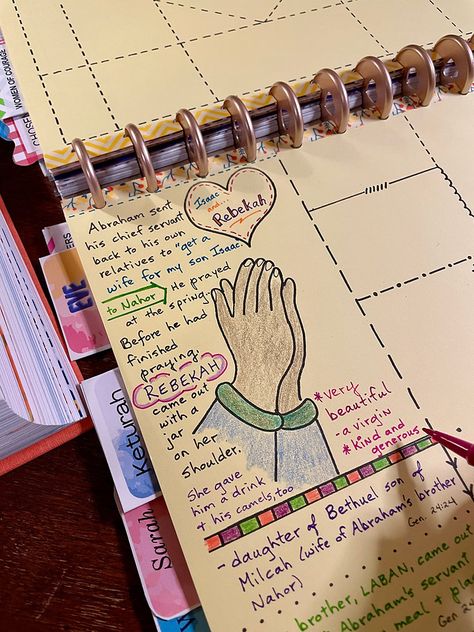 WOMEN OF COURAGE
CHOSEN
Isaac
and...
Rebekah
Abraham sent
his chief servant
back to his own
relatives to "get a
wife for my son Isaac"
to Nahor. He prayed
at the spring-
Before he had
finished
praying,
REBEKAH
came out
with a
jar
on her
shoulder.
She gave
him a drink
+ his camels, too
*very
beautiful
-a virgin
*kind and
generous
- daughter of Bethuel son of
Milcah (wife of Abraham's brother
Nahor) Gen. 24:24
brother, LABAN, came out
Abraham's servant
meal + pl
Gen. 24
EVE
Keturah
Sarah